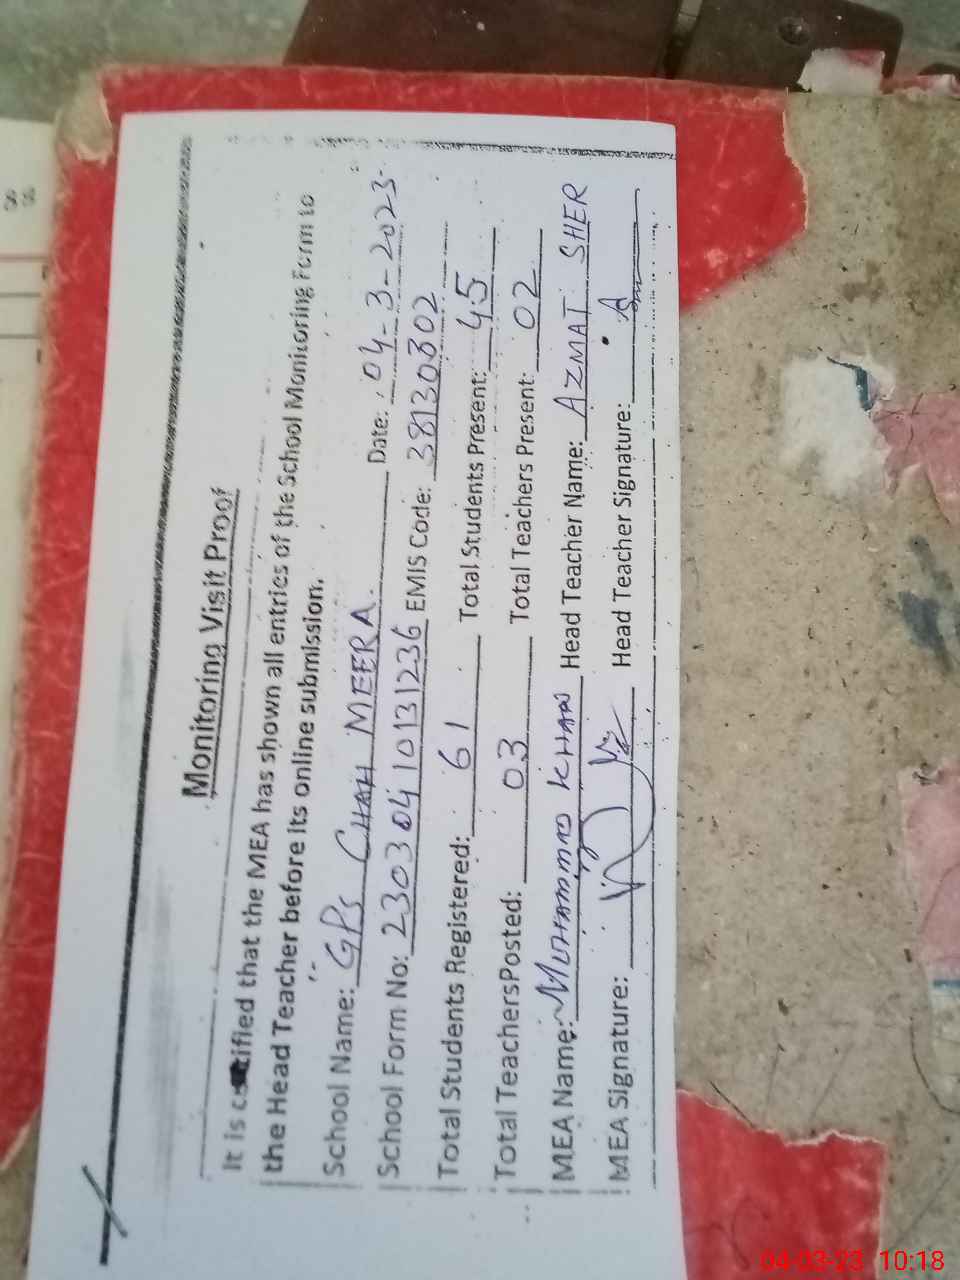 Monitoring Visit Proof
It is certified that the MEA has shown all entries of the School Monitoring Form to
the Head Teacher before its online submission.
School Name: GPS CHAH MEERA. Date: 04-3-2023-
School Form No: 23030410131236 EMIS Code: 38130302
Total Students Registered: 61 Total Students Present: 45
Total TeachersPosted: 03 Total Teachers Present: 02
MEA Name: MUHAMMAD KHAN Head Teacher Name: AZMAT SHER
MEA Signature: Head Teacher Signature:
04-03-23 10:18